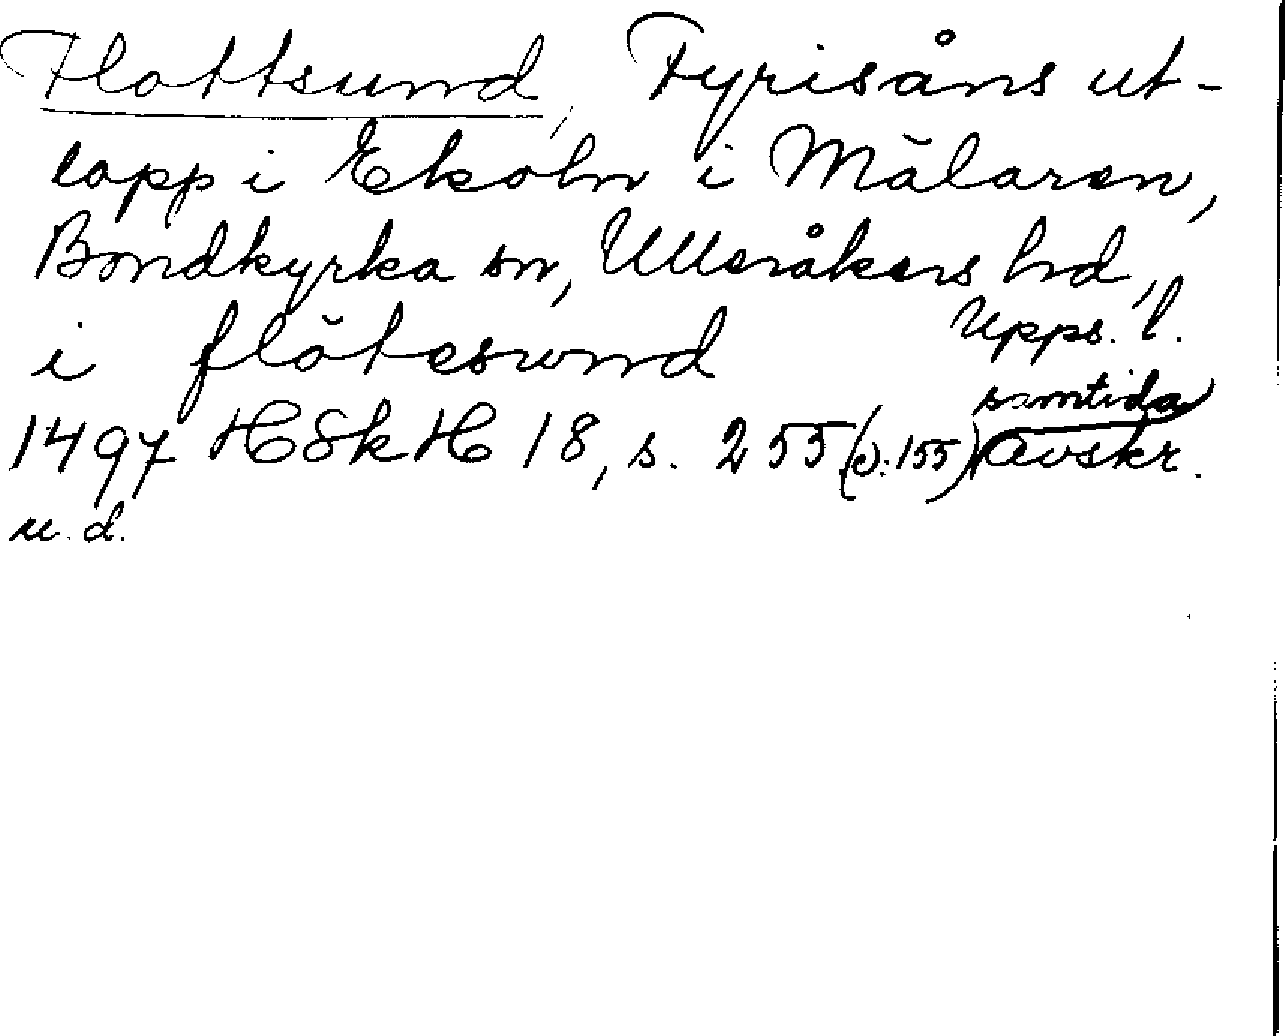 Flottsund, Fyrisåns ut-
lopp i Ekoln i Mälaren,
Bondkyrka sn, Ulleråkers hd,
Upps. l.
i flötesund
samtida
1497 HSkH 18, s. 255 (o: 155) avskr.
u. d.